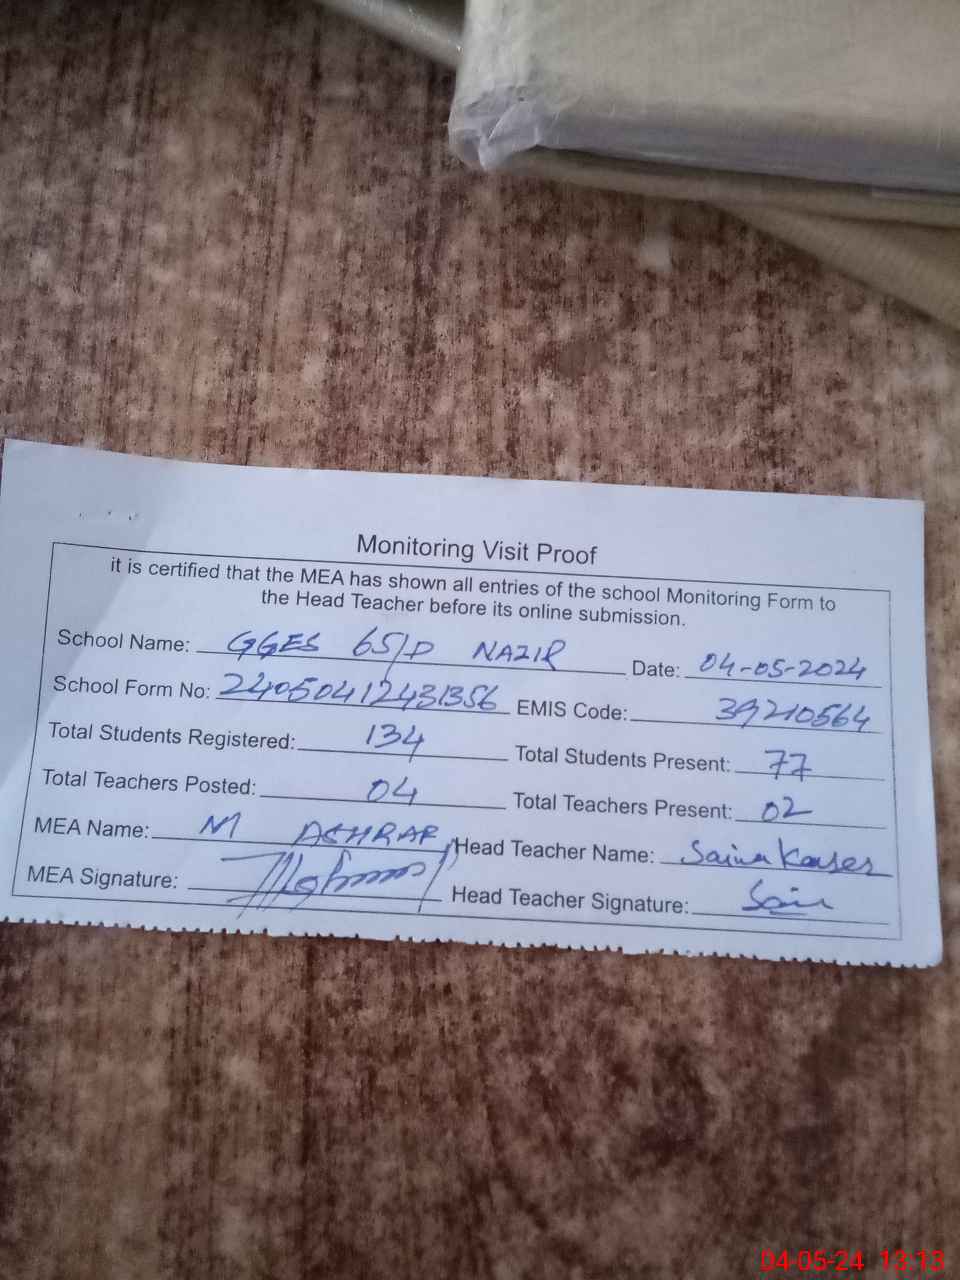 Monitoring Visit Proof
it is certified that the MEA has shown all entries of the school Monitoring Form to
the Head Teacher before its online submission.
School Name: GGES 65/D NAZIR Date: 04-05-2024
School Form No: 24050412431356 EMIS Code: 39210564
Total Students Registered: 134 Total Students Present: 77
Total Teachers Posted: 04 Total Teachers Present: 02
MEA Name: M ASHRAF Head Teacher Name: Saima Kouser
MEA Signature: Head Teacher Signature:
04-05-24 13:13